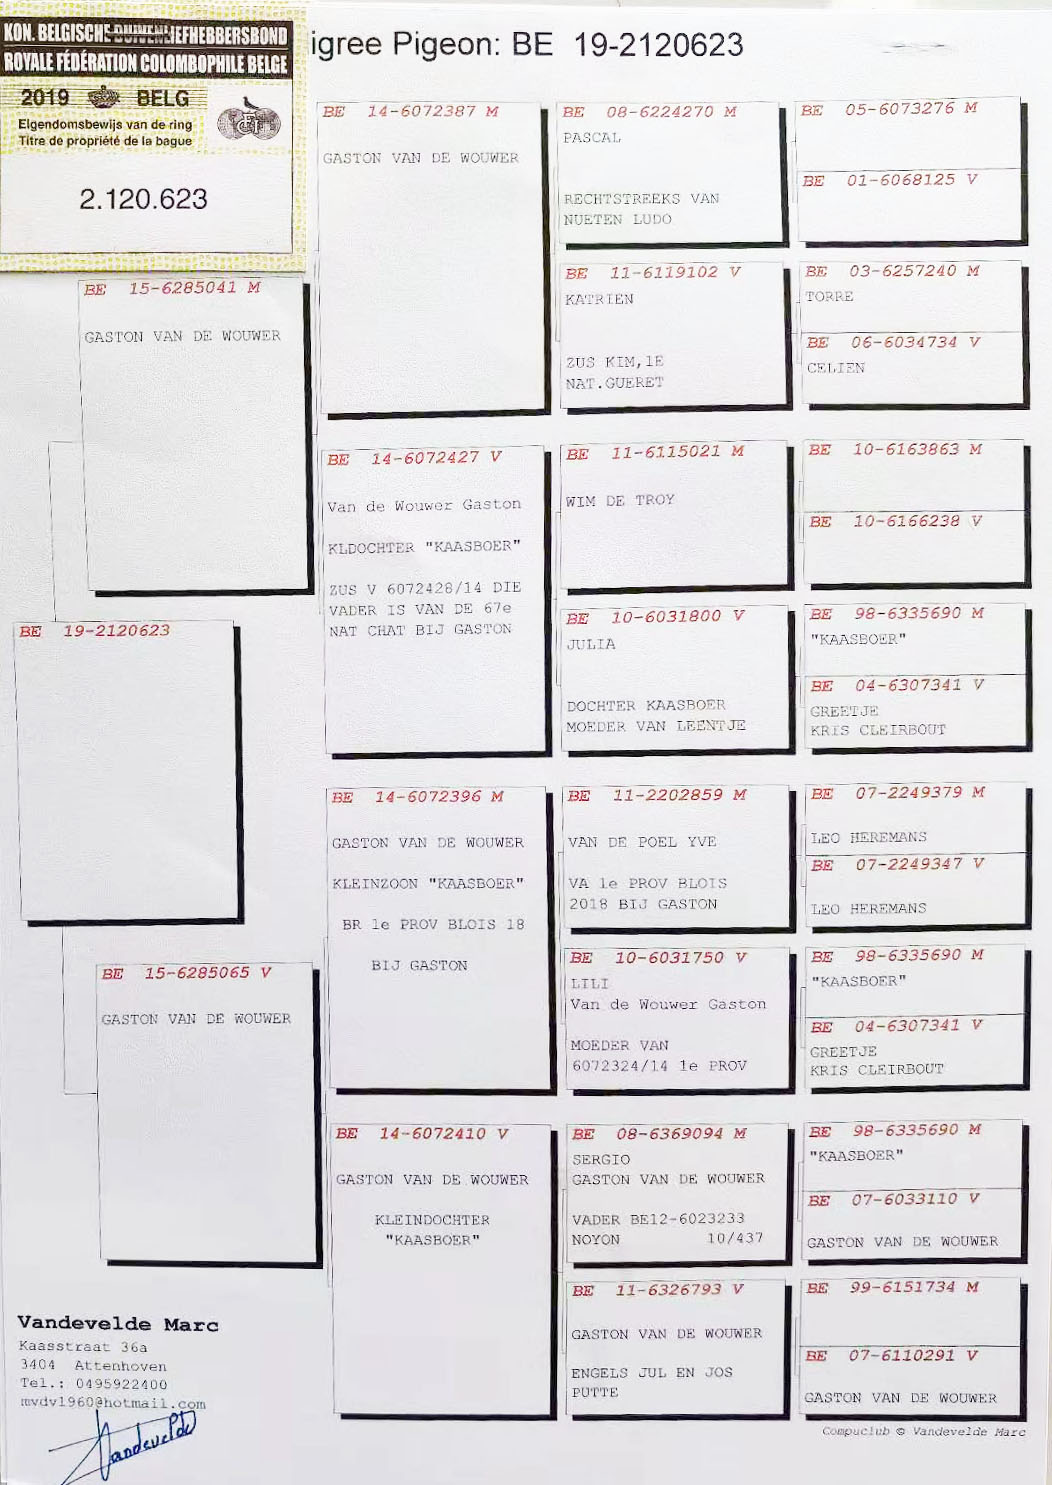 KON. BELGISCHE DUIVENLIEFHEBBERSBOND
ROYALE FÉDÉRATION COLOMBOPHILE BELGE
2019 BELG
Eigendomsbewijs van de ring
Titre de propriété de la bague
2.120.623
igree Pigeon: BE 19-2120623
BE 15-6285041 M
GASTON VAN DE WOUWER
BE 19-2120623
BE 15-6285065 V
GASTON VAN DE WOUWER
BE 14-6072387 M
GASTON VAN DE WOUWER
BE 14-6072427 V
Van de Wouwer Gaston
KLDOCHTER "KAASBOER"
ZUS V 6072428/14 DIE
VADER IS VAN DE 67e
NAT CHAT BIJ GASTON
BE 14-6072396 M
GASTON VAN DE WOUWER
KLEINZOON "KAASBOER"
BR 1e PROV BLOIS 18
BIJ GASTON
BE 14-6072410 V
GASTON VAN DE WOUWER
KLEINDOCHTER
"KAASBOER"
BE 08-6224270 M
PASCAL
RECHTSTREEKS VAN
NUETEN LUDO
BE 11-6119102 V
KATRIEN
ZUS KIM,1E
NAT.GUERET
BE 11-6115021 M
WIM DE TROY
BE 10-6031800 V
JULIA
DOCHTER KAASBOER
MOEDER VAN LEENTJE
BE 11-2202859 M
VAN DE POEL YVE
VA 1e PROV BLOIS
2018 BIJ GASTON
BE 10-6031750 V
LILI
Van de Wouwer Gaston
MOEDER VAN
6072324/14 1e PROV
BE 08-6369094 M
SERGIO
GASTON VAN DE WOUWER
VADER BE12-6023233
NOYON 10/437
BE 11-6326793 V
GASTON VAN DE WOUWER
ENGELS JUL EN JOS
PUTTE
BE 05-6073276 M
BE 01-6068125 V
BE 03-6257240 M
TORRE
BE 06-6034734 V
CELIEN
BE 10-6163863 M
BE 10-6166238 V
BE 98-6335690 M
"KAASBOER"
BE 04-6307341 V
GREETJE
KRIS CLEIRBOUT
BE 07-2249379 M
LEO HEREMANS
BE 07-2249347 V
LEO HEREMANS
BE 98-6335690 M
"KAASBOER"
BE 04-6307341 V
GREETJE
KRIS CLEIRBOUT
BE 98-6335690 M
"KAASBOER"
BE 07-6033110 V
GASTON VAN DE WOUWER
BE 99-6151734 M
BE 07-6110291 V
GASTON VAN DE WOUWER
Compuclub © Vandevelde Marc
Vandevelde Marc
Kaasstraat 36a
3404 Attenhoven
Tel.: 0495922400
mvdv1960@hotmail.com
Vandevelde